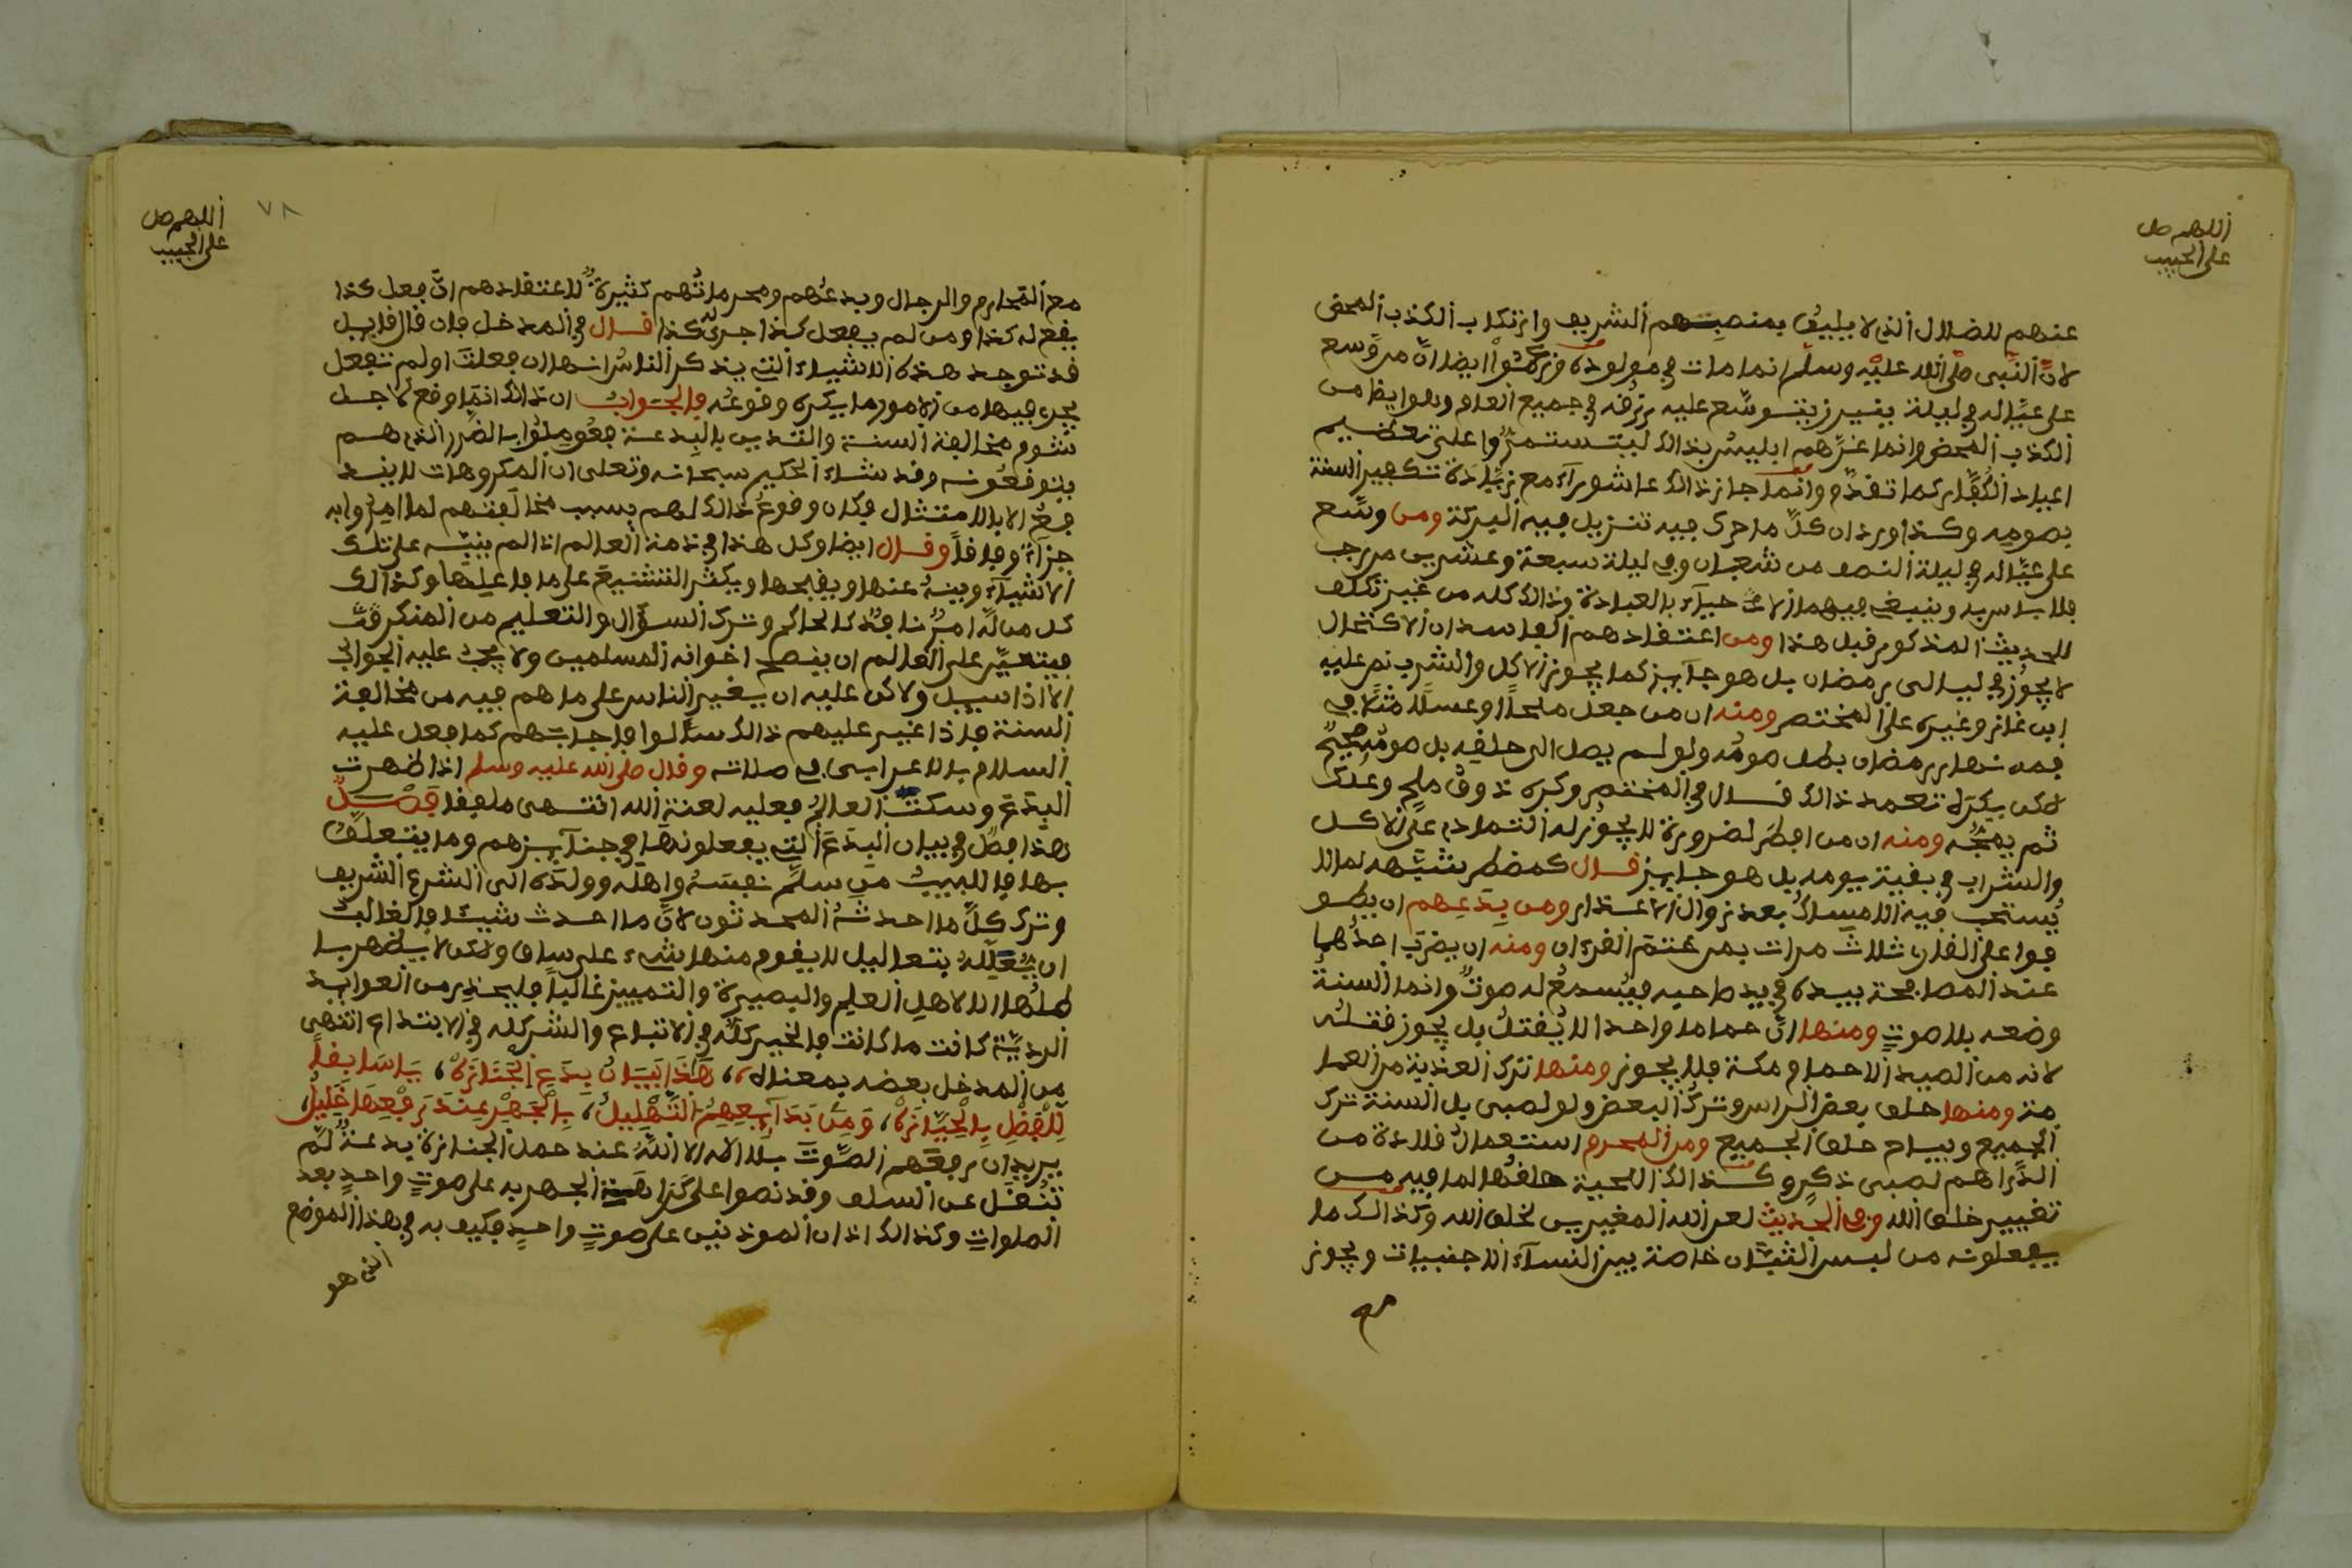 اللهم صل
على الحبيب
عنهم للضلال الذي لا يليق بمنصبهم الشريف وارتكاب الكذب المحض
لأن النبي صلى الله عليه وسلم انما مات في مولوده وزعموا ايضا ان من وسع
على عياله في ليلة ينير زيتوسع عليه رزقه في جميع العام وهو ايضا من
الكذب المحض وانما غرهم ابليس بذالك ليتستمروا على تعظيم
اعياد الكفار كما تقدم وانما جاز ذالك عاشوراء مع زيادة تكفير السنة
بصومه وكذا ورد ان كل ما حرك فيه تنزيل فيه البركة ومن وسع
على عياله في ليلة النصف من شعبان وفي ليلة سبعة وعشرين من رجب
فلا باس به وينبغي فيهما الاحياء بالعبادة وذالك كله من غير تكلف
للحديث المذكور قبل هذا ومن اعتقادهم الفاسد ان الاكتحال
لا يجوز في ليالي رمضان بل هو جايز كما يجوز الاكل والشرب نص عليه
ابن غاز وغيره على المختصر ومنه ان من جعل ملحا او عسلا مثلا في
فمه نهار رمضان بطل صومه ولو لم يصل الى حلقه بل صومه صحيح
لاكن يكره تعمد ذالك قال في المختصر وكره ذوق ملح وعلك
ثم يمجه ومنه ان من افطر لضرورة لا يجوز له التمادي على الاكل
والشراب في بقية يومه بل هو جايز قال كمضطر بشبهه لما لا
يستحب فيه الامساك بعد زوال الاعذار ومن بدعهم ان يطو
فوا على الفار ثلاث مرات بمن ختم القرءان ومنه ان يضرب احدهما
عند المصافحة بيده في يد صاحبه فيسمع له صوت وانما السنة
وضعه بلا صوت ومنها ان حماما واحدا لا يقتل بل يجوز فقتله
لانه من الصيد الا حمام مكة فلا يجوز ومنها ترك العذبة من العما
مة ومنها حلق بعض الراس وترك البعض ولو لصبى بل السنة ترك
الجميع ويباح حلق الجميع ومن المحرم استعمال قلادة من
الدراهم لصبى ذكر وكذالك اللحية حلقها لما فيه من
تغيير خلق الله وفي الحديث لعن الله المغيرين لخلق الله وكذالك ما
يفعلونه من لبس الثياب خاصة بين النساء الاجنبيات ويجوز
مع
اللهم صل
على الحبيب
٧٨
مع المحارم والرجال وبدعهم ومحرماتهم كثيرة لاعتقادهم ان فعل كذا
يقع له كذا ومن لم يفعل كذا جرى له كذا قال في المدخل فان قال قايل
قد توجد هذه الاشياء التي يذكر الناس انها ان فعلت او لم تفعل
يجرى فيها من الامور ما يكره وقوعه فالجواب ان ذالك انما وقع لاجل
شوم مخالفة السنة والتدين بالبدعة فعوملوا بالضرر الذي هم
يتوقعونه وقد شاء الحكيم سبحانه وتعلى ان المكروهات لا يند
فع الا بالامتثال فكان وقوع ذالك لهم بسبب مخالفتهم لما امروا به
جزاء وفاقا وقال ايضا وكل هذا في ذمة العالم اذا لم ينبه على تلك
الاشياء وينه عنها ويقبحها ويكثر التشنيع على ما فاعليها وكذالك
كل من له امر نافذ كالحاكم وترك السؤال والتعليم من المنكر فت
فيتعين على العالم ان ينصح اخوانه المسلمين ولا يجب عليه الجواب
الا اذا سيل ولاكن عليه ان يغير الناس على ما هم فيه من مخالفة
السنة فاذا غير عليهم ذالك سالوا فاجابهم كما فعل عليه
السلام بالاعرابى في صلاته وقال صلى الله عليه وسلم اذا ظهرت
البدع وسكت العالم فعليه لعنة الله انتهى ملفقا فصل
هذا فصل في بيان البدع التي يفعلونها في جنآيزهم وما يتعلق
بها فاللبيب من سلم نفسه واهله وولده الى الشرع الشريف
وترك كل ما احدثه المحدثون لان ما احدث شيئا فالغالب
ان يعلله بتعاليل لا يقوم منها شيء على ساق ولاكن لا يظهر با
طلها الا لاهل العلم والبصيرة والتمييز غالبا فليحذر من العوايد
الردية كانت ما كانت فالخير كله في الاتباع والشر كله في الابتداع انتهى
من المدخل بعضه بمعناه، هذا بيان بدع الجنازه، يا سايقا
للفضل بالحيازه، ومن بدايعهم التهليل، بالجهر عند رفعها خليل،
يريد ان رفعهم الصوت بلا اله الا الله عند حمل الجنازة بدعة لم
تنقل عن السلف وقد نصوا على كراهة الجهر به على صوت واحد بعد
الصلوات وكذالك اذان الموذنين على صوت واحد فكيف به في هذا الموضع
الذي هو